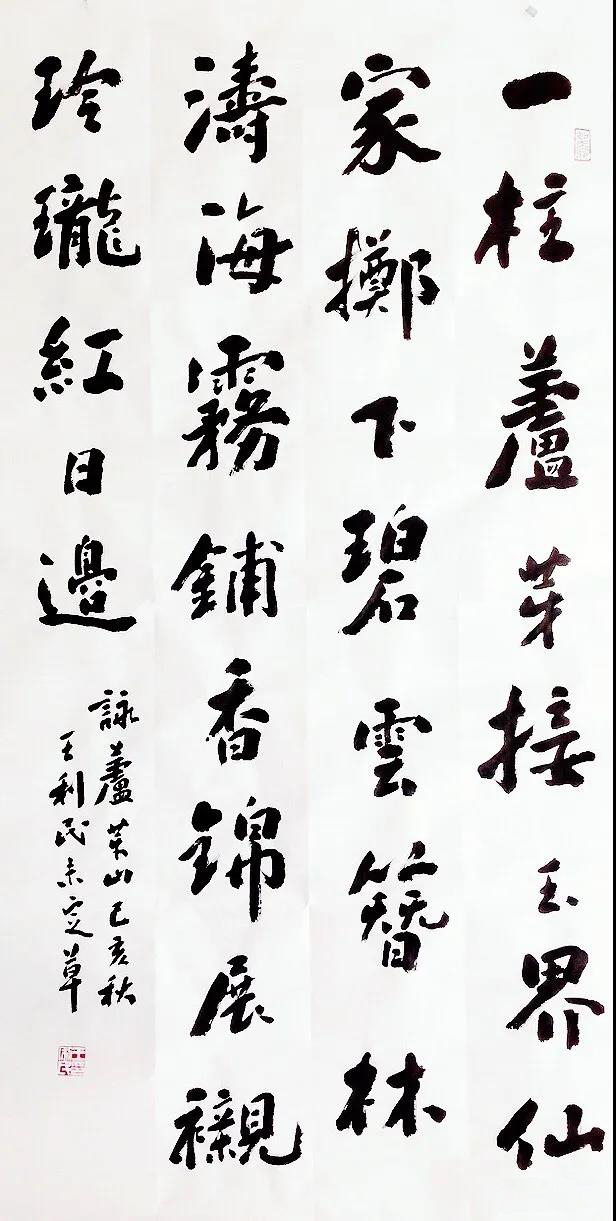 一柱蘆芽接玉界仙
家擲下碧雲簪林
濤海霧鋪香錦展襯
玲瓏紅日邊
詠蘆芽山己亥秋
王利民未定草